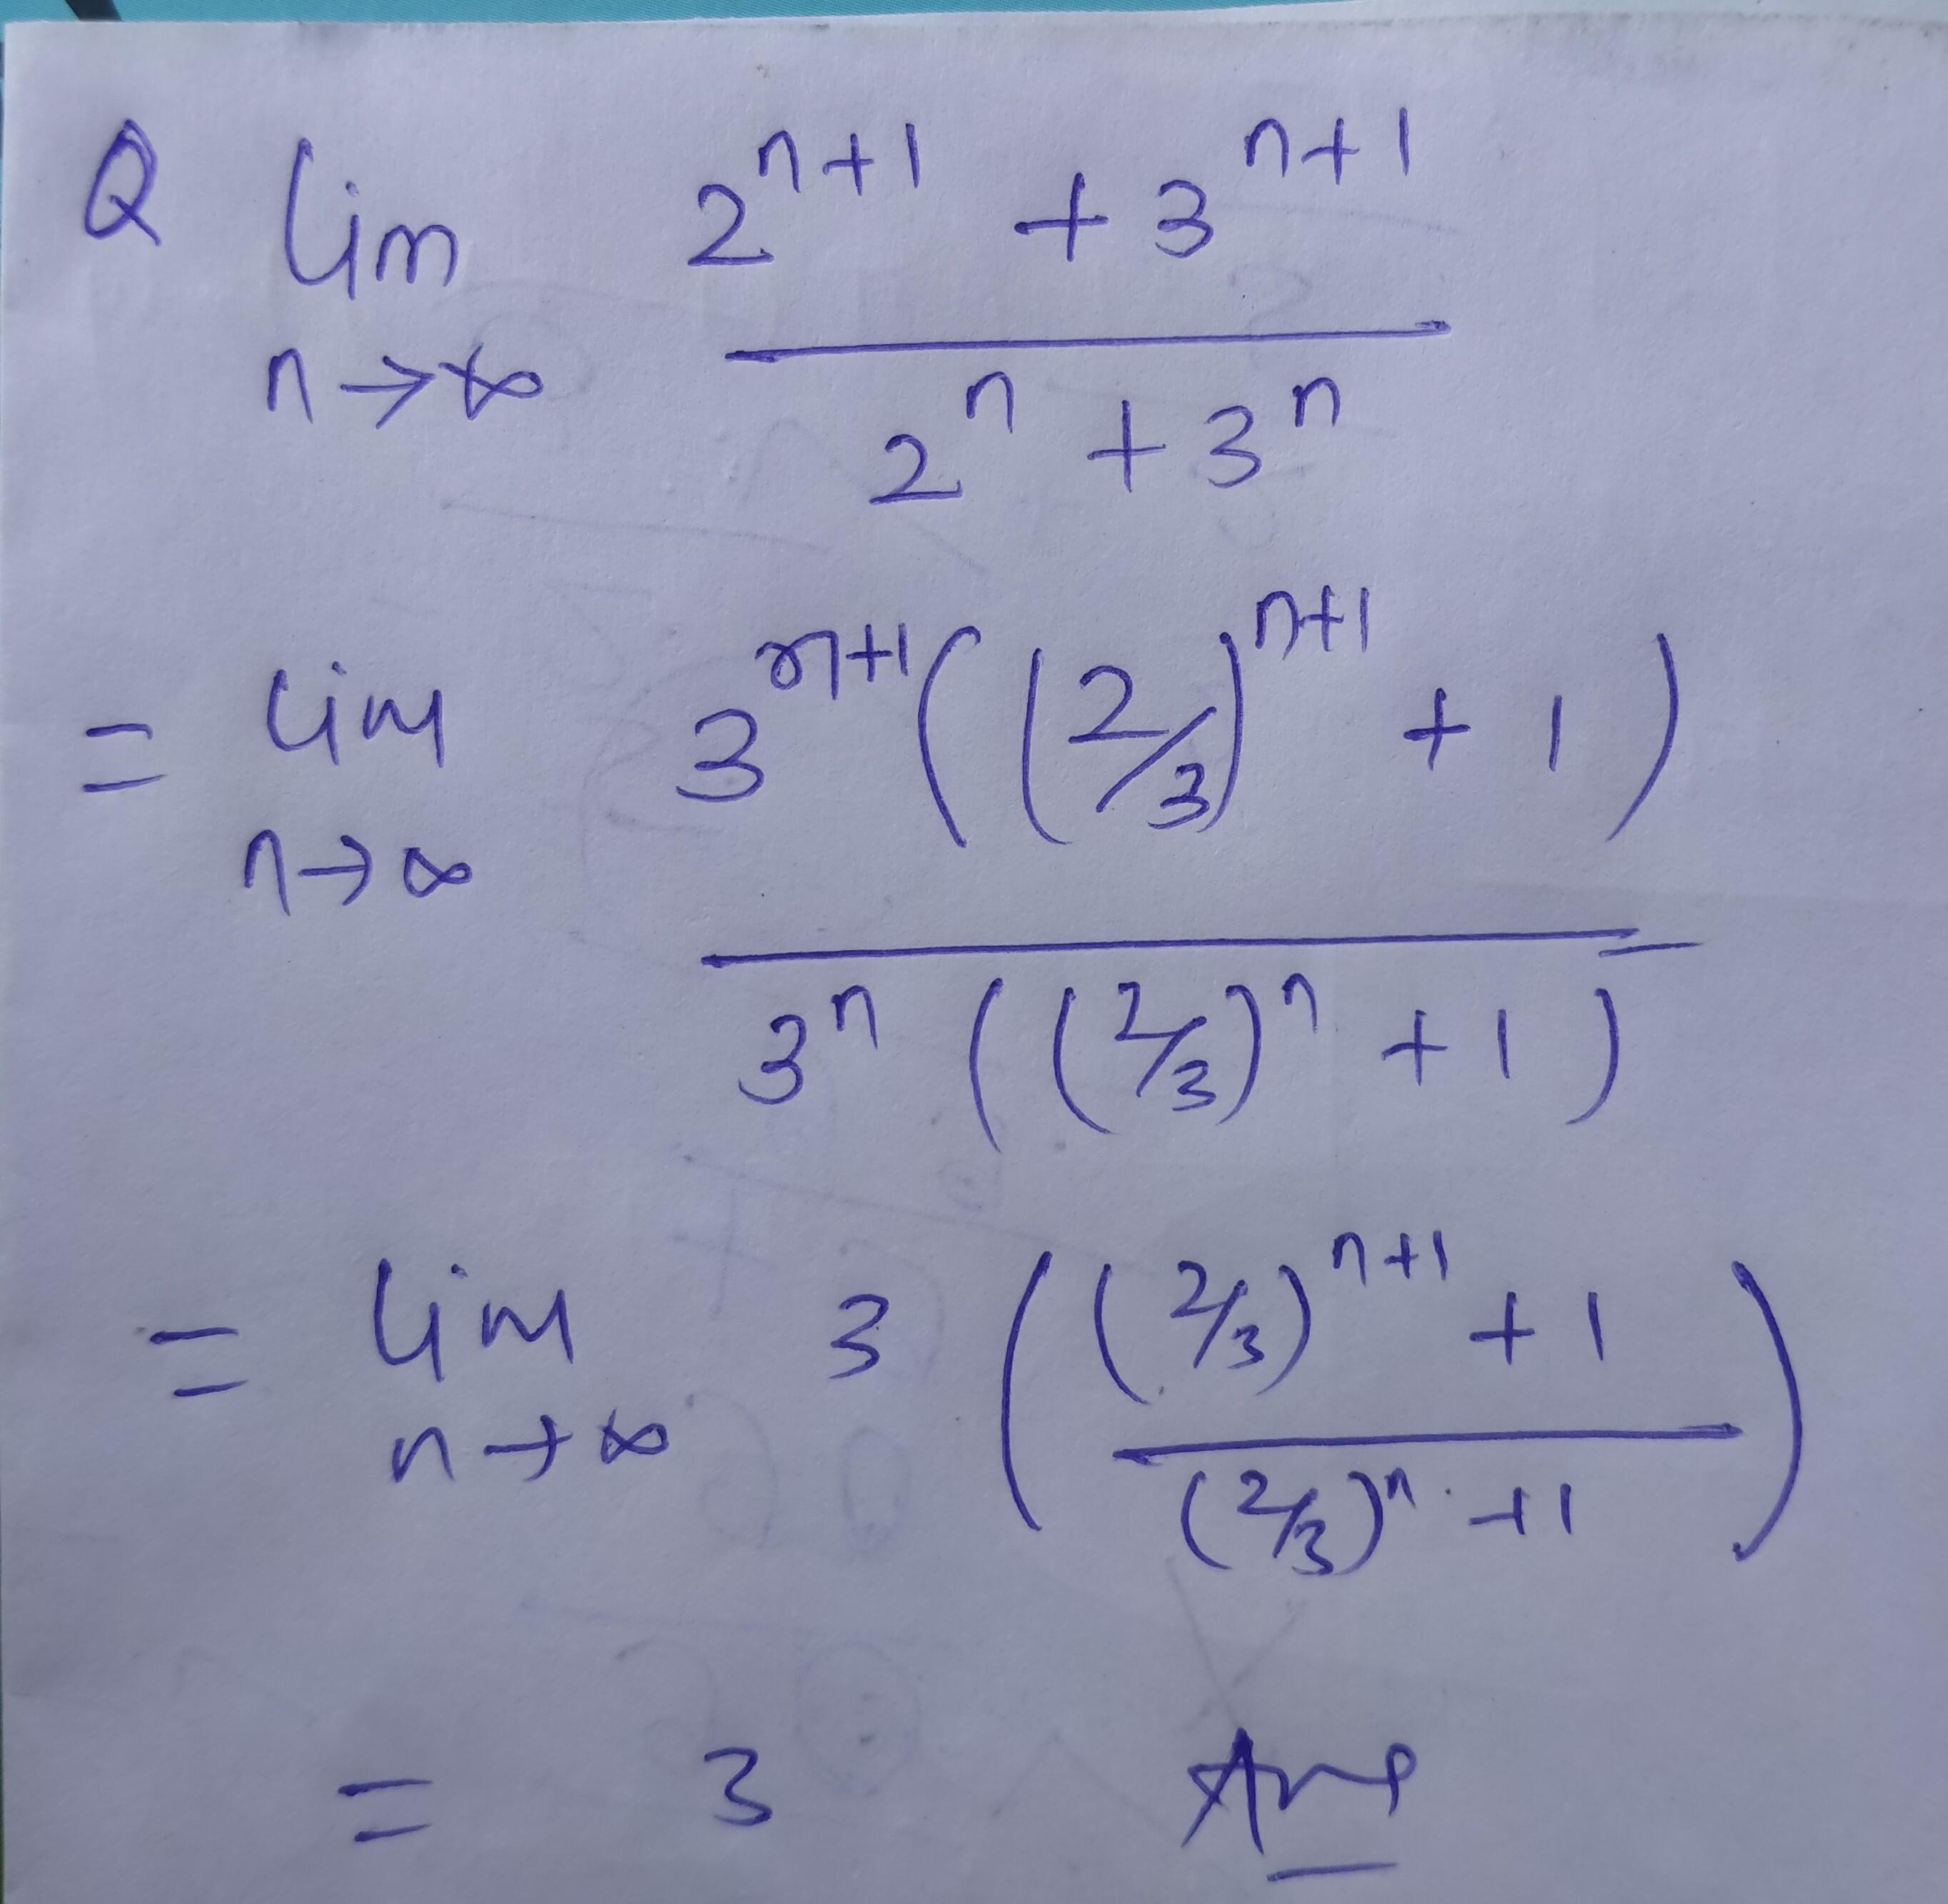 Q lim n→∞ (2^(n+1) + 3^(n+1)) / (2^n + 3^n)
= lim n→∞ 3^(n+1) ((2/3)^(n+1) + 1) / 3^n ((2/3)^n + 1)
= lim n→∞ 3 (((2/3)^(n+1) + 1) / ((2/3)^n + 1))
= 3 Ans